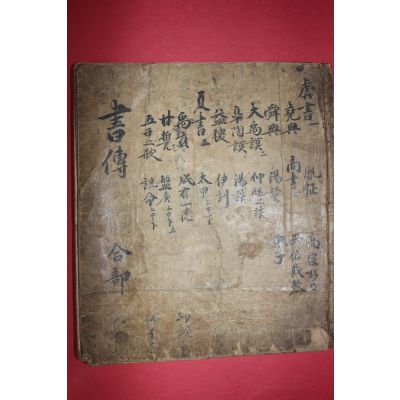 虞書一 胤征 高宗肜日
堯典 商書 西伯戡黎
舜典 湯誓 微子
大禹謨二 仲虺之誥
皐陶謨 湯誥
益稷 伊訓
夏書三 太甲上中下
禹貢 咸有一德
甘誓 盤庚上中下
五子之歌 說命上中下
書傳 合部